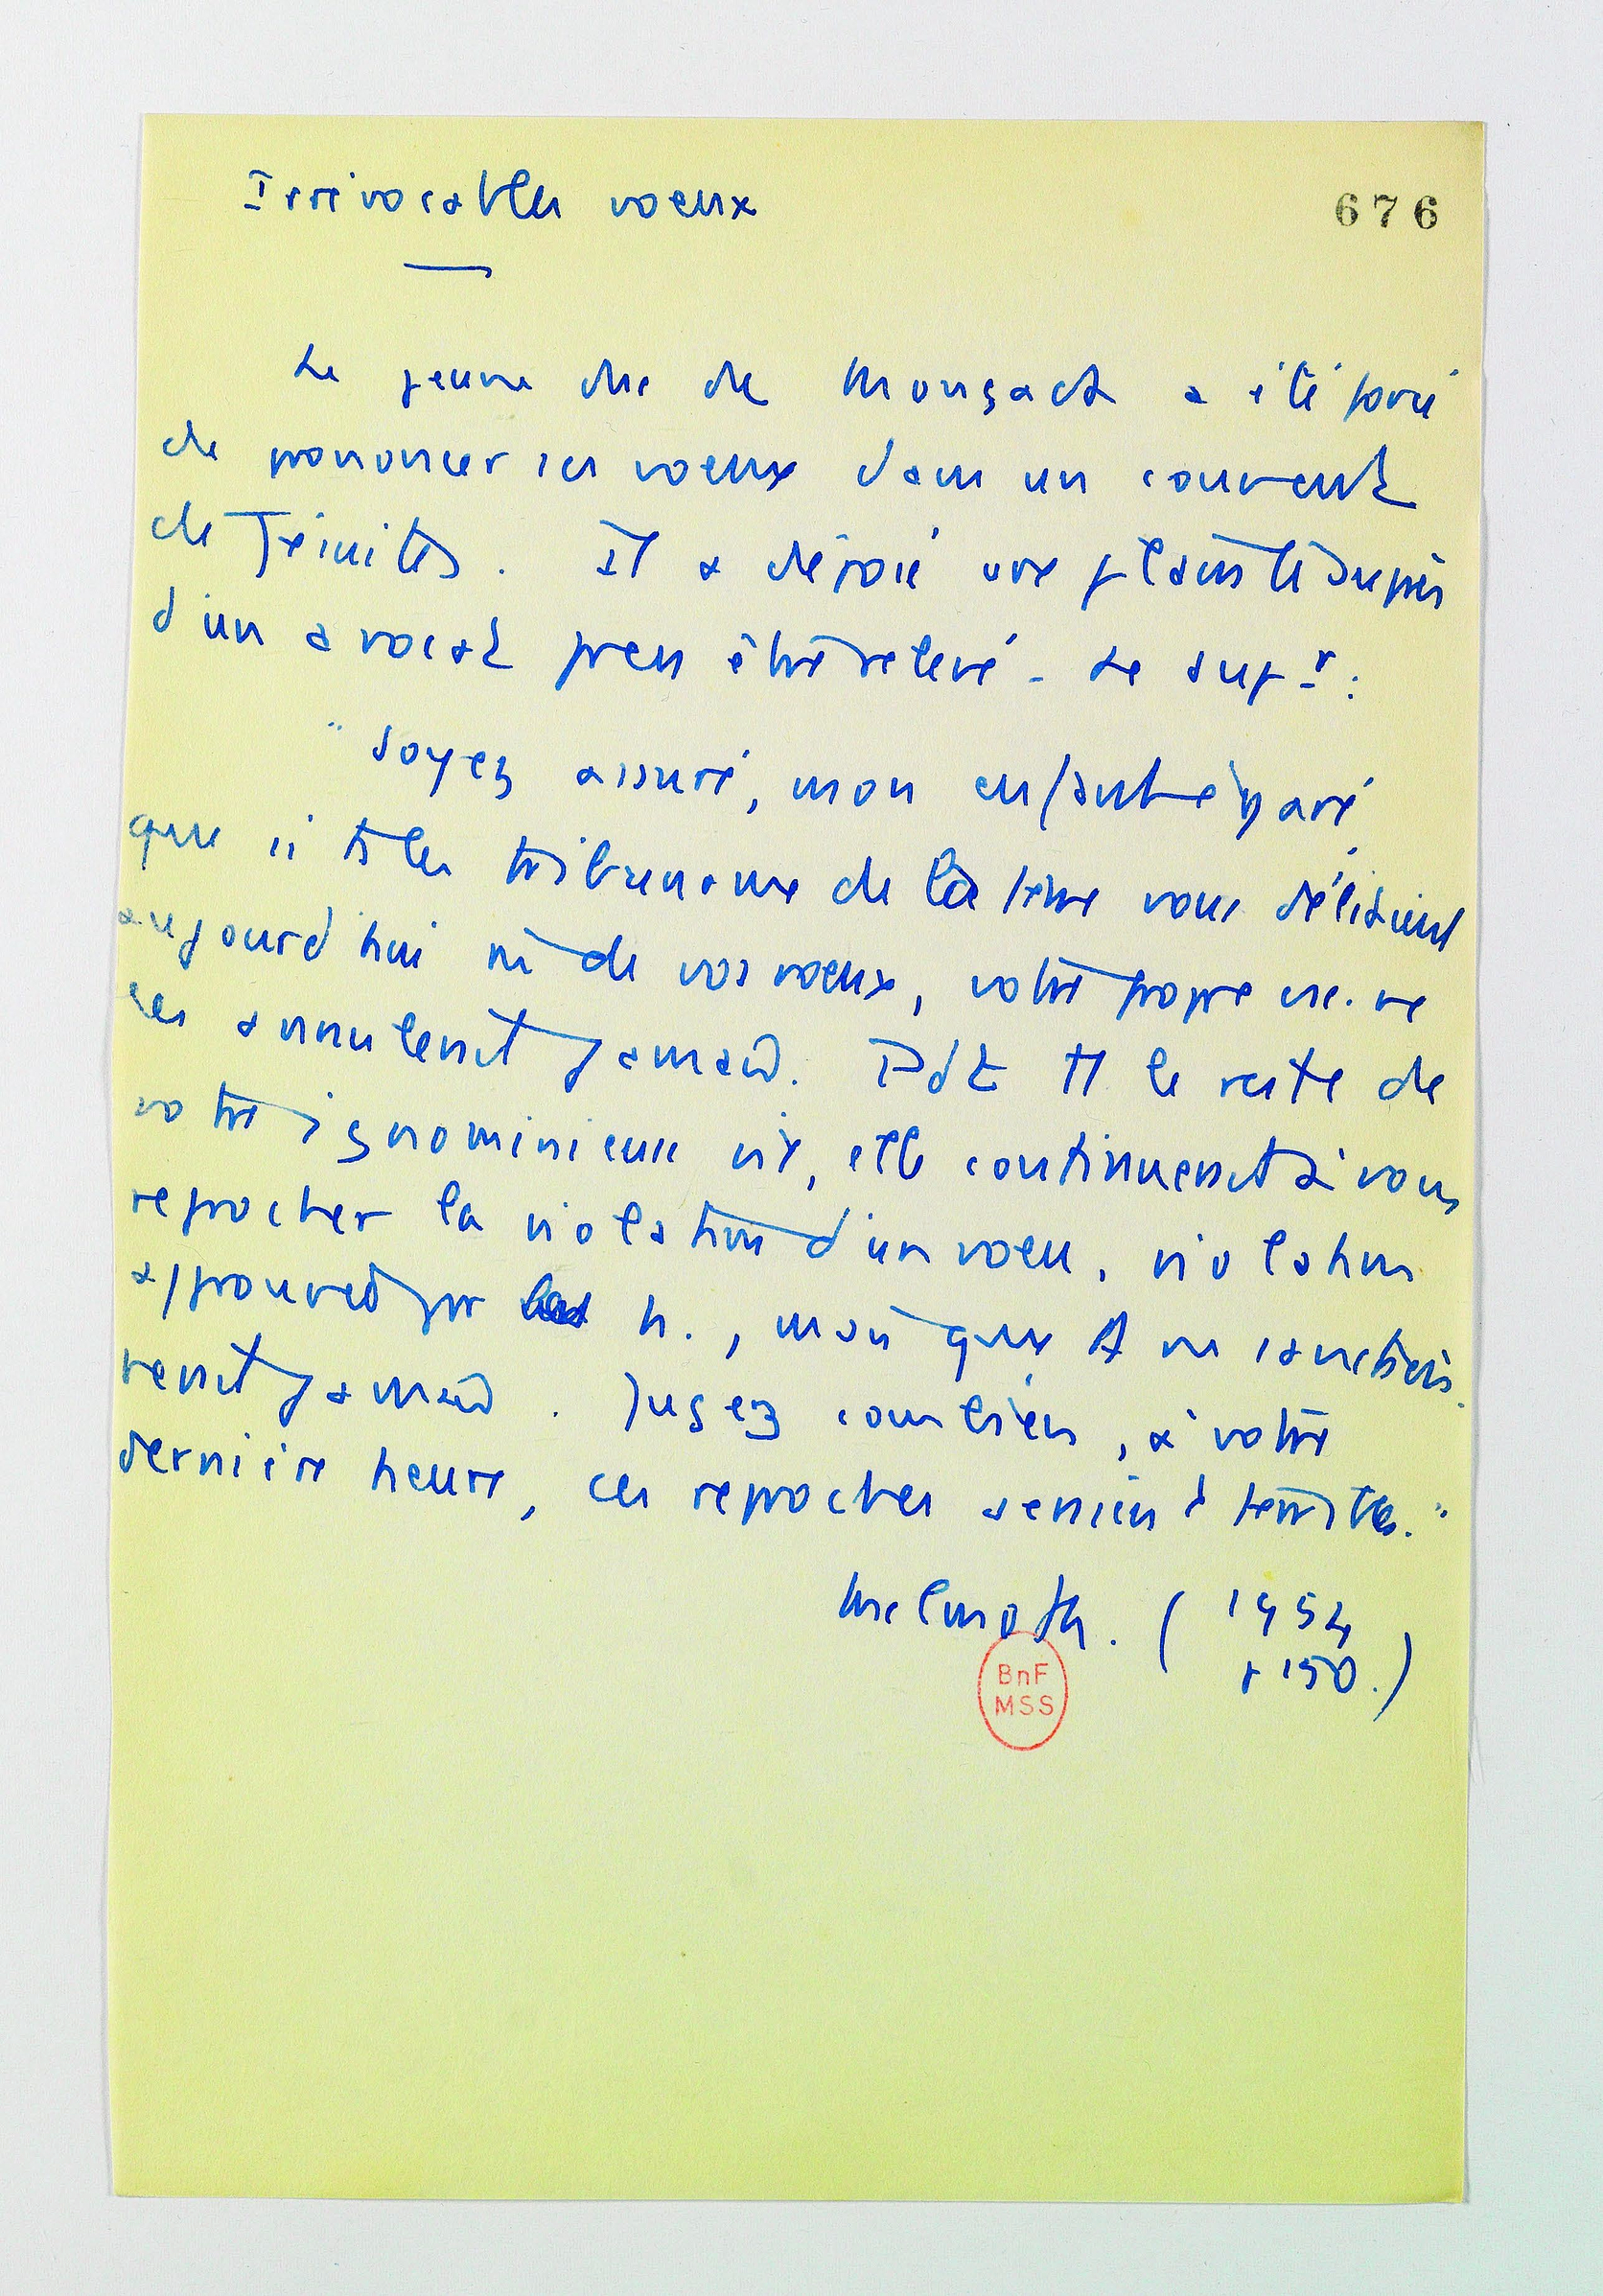 Irrévocables voeux
676
Le jeune duc de Monçada a été forcé
de prononcer ses voeux dans un couvent
de Jésuites. Il a déposé une plainte auprès
d'un avocat pour être relevé. Le supr:
"Soyez assuré, mon enfant égaré,
que si ts les tribunaux de la terre vous déliaient
aujourd'hui de vos voeux, votre propre ne
les annulerait jamais. Pdt tt le reste de
votre ignominieuse vie, elle continuerait à vous
reprocher la violation d'un voeu, violation
approuvée par h., mais que ne sanctionne-
rait jamais. Jugez combien, à votre
dernière heure, ces reproches seraient terribles."
Melmoth. (1954
+ 150.)
BnF
MSS